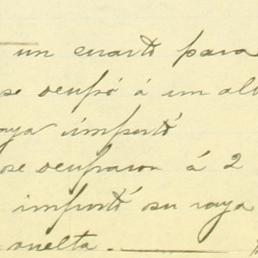 un cuarto para
se ocupó á un al
raya importó
se ocuparon á 2
importó su raya
vuelta.